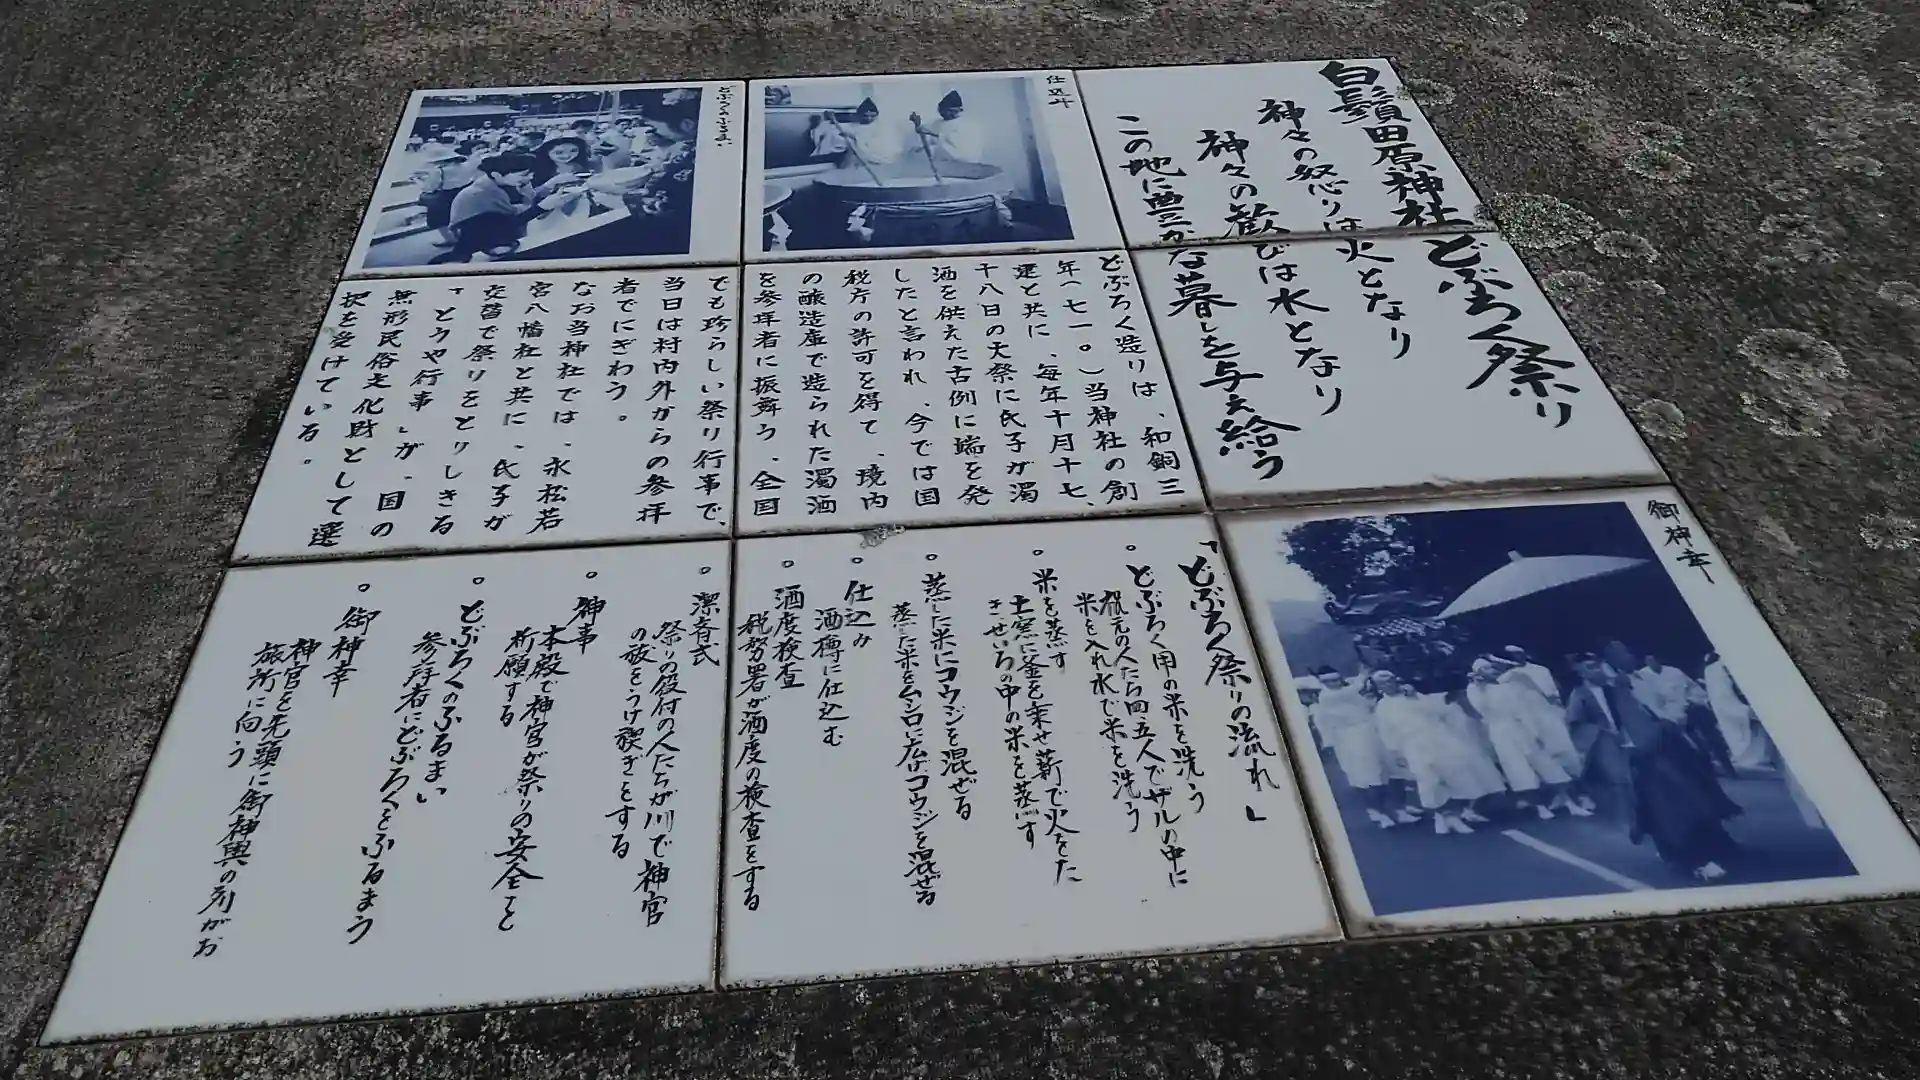 白鬚田原神社どぶろく祭り
神々の怒りは火となり
神々の歓びは水となり
この地に豊かな暮しを与え給う
仕込み
どぶろくのふるまい
どぶろく造りは、和銅三
年(七一〇)当神社の創
建と共に、毎年十月十七、
十八日の大祭に氏子が濁
酒を供えた古例に端を発
したと言われ、今では国
税庁の許可を得て、境内
の醸造庫で造られた濁酒
を参拝者に振舞う、全国
でも珍らしい祭り行事で、
当日は村内外からの参拝
者でにぎわう。
なお当神社では、永松若
宮八幡社と共に、氏子が
交替で祭りをとりしきる
「とうや行事」が、国の
無形民俗文化財として選
択を受けている。
御神幸
「どぶろく祭りの流れ」
○どぶろく用の米を洗う
祝元の人たち四五人でザルの中に
米を入れ水で米を洗う
○米を蒸す
土窯に釜を乗せ薪で火をた
きせいろの中の米を蒸す
○蒸した米にコウジを混ぜる
蒸した米をムシロに広げコウジを混ぜる
○仕込み
酒樽に仕込む
○酒度検査
税務署が酒度の検査をする
○潔斎式
祭りの役付の人たちが川で神官
の祓をうけ禊ぎをする
○神事
本殿で神官が祭りの安全を
祈願する
○どぶろくのふるまい
参拝者にどぶろくをふるまう
○御神幸
神官を先頭に御神輿の列がお
旅所に向う